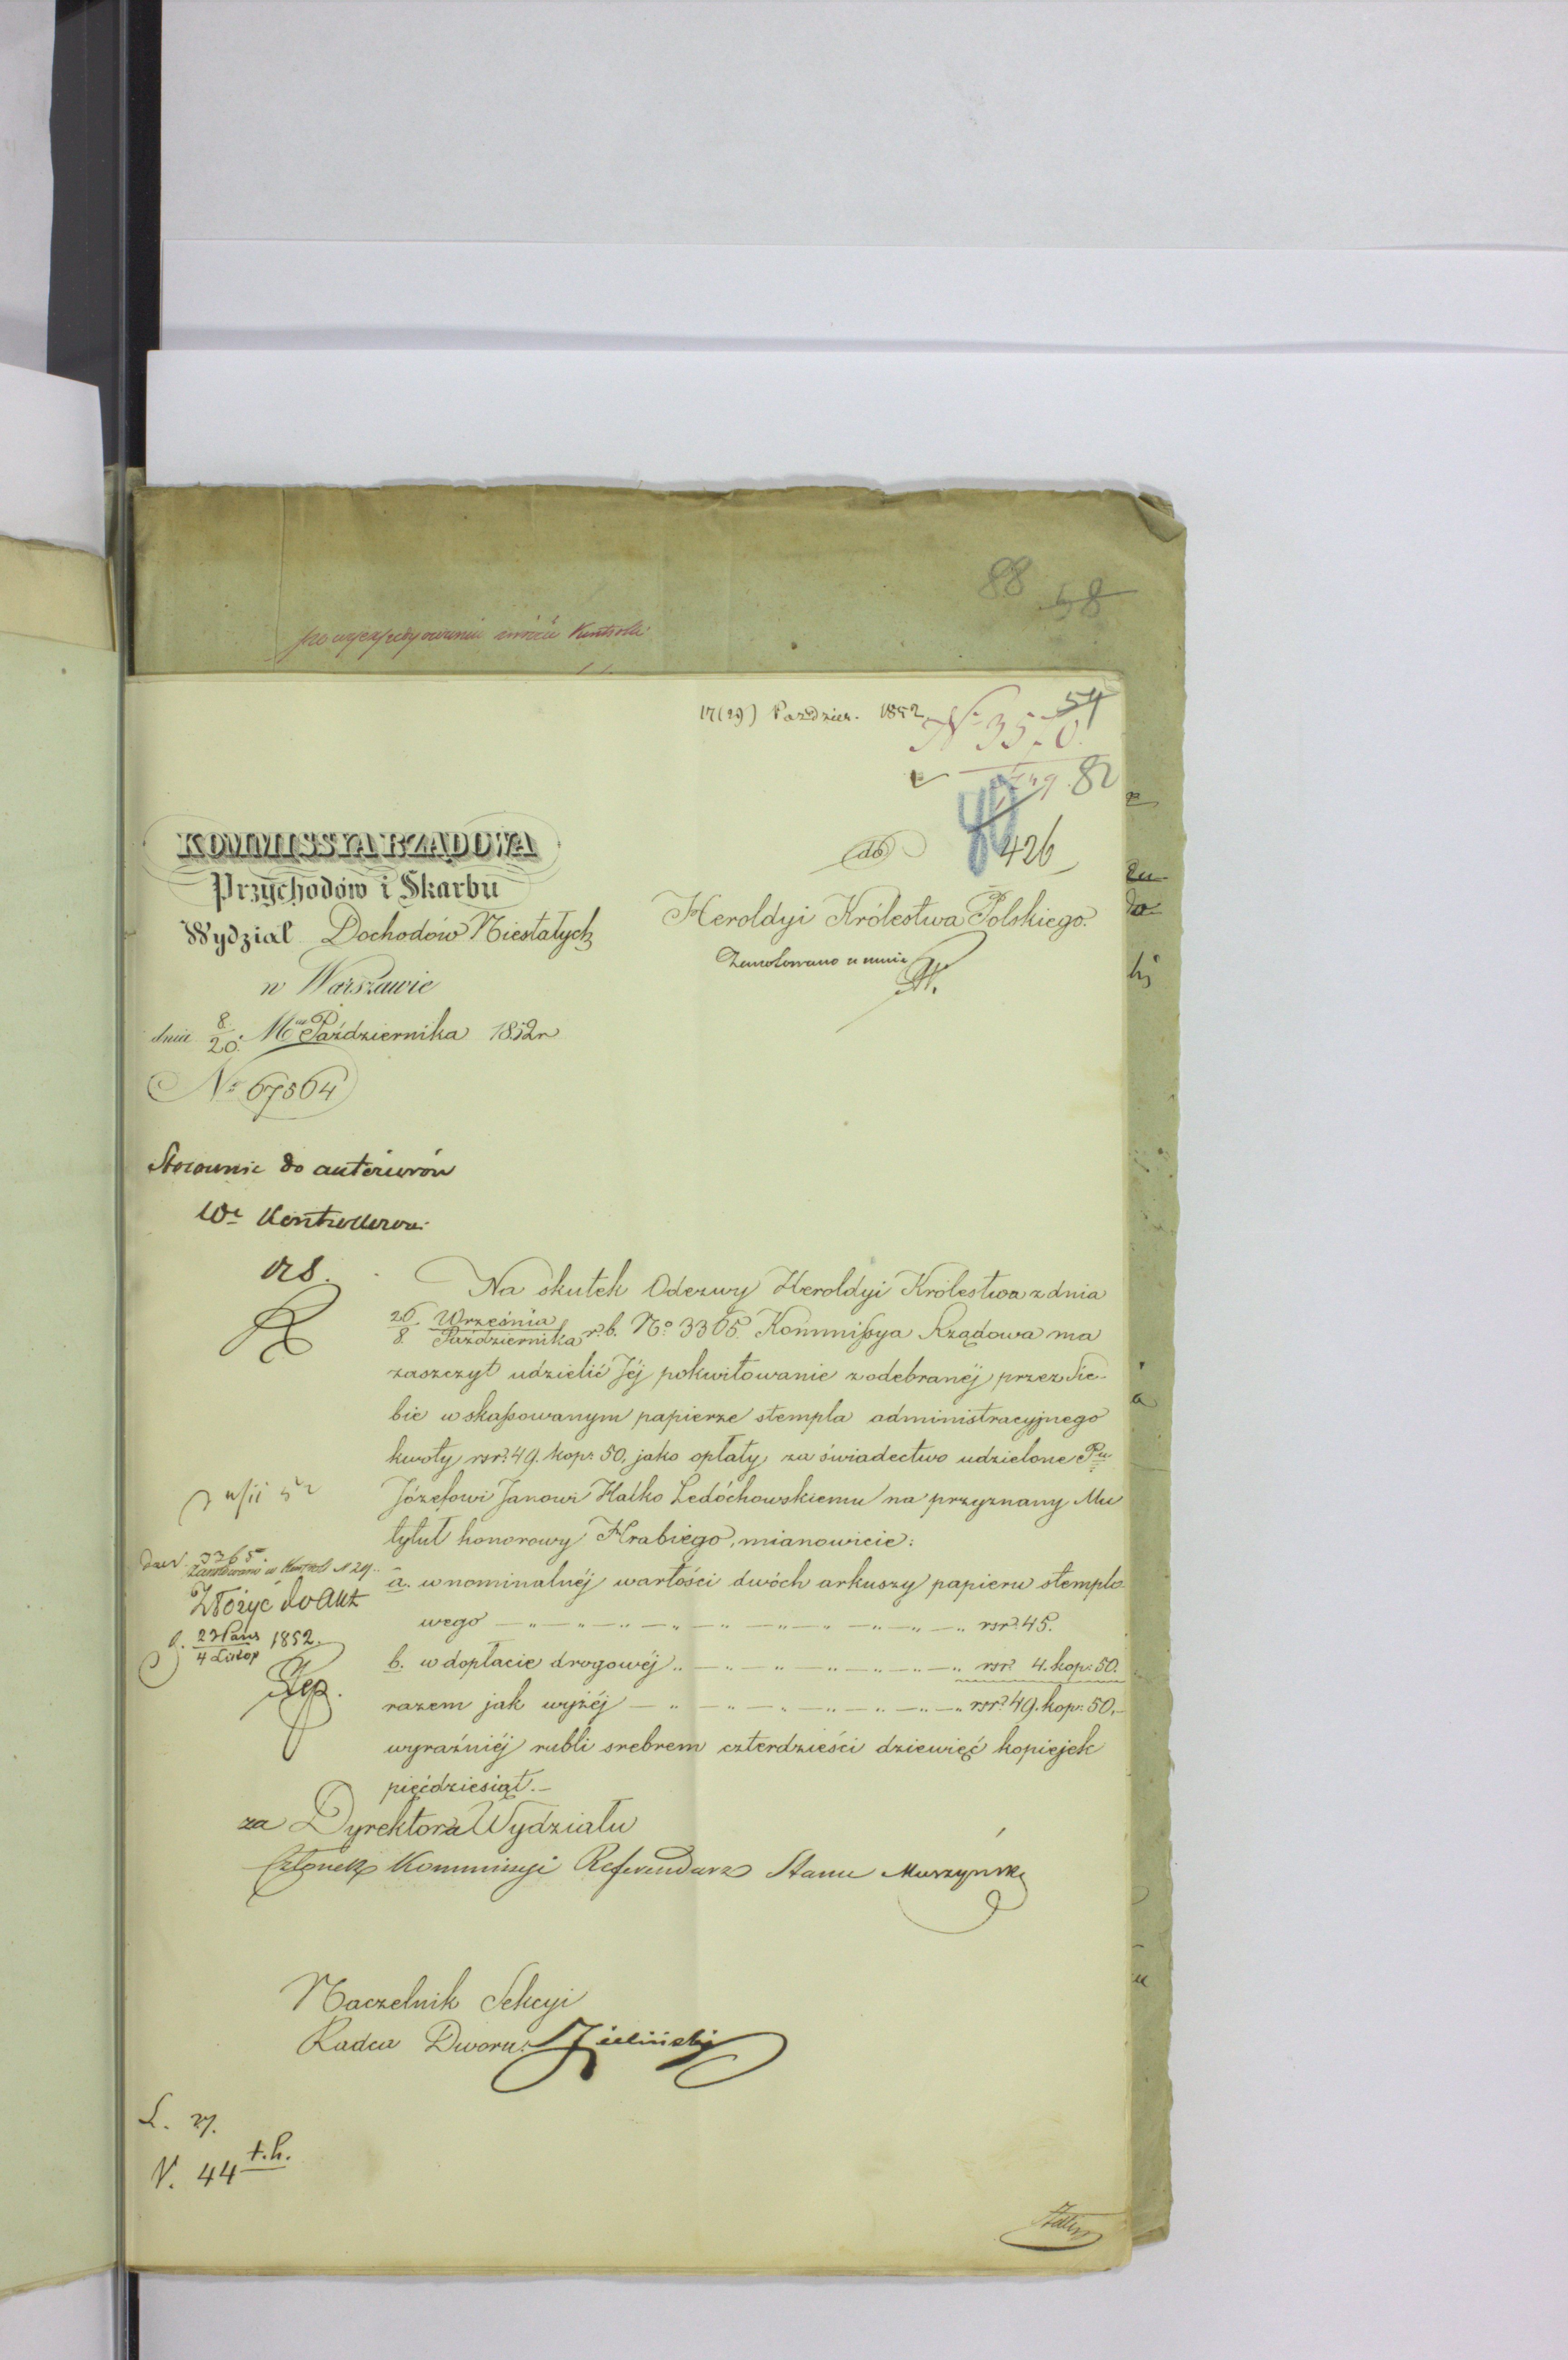 88 58
po wyexpedyowaniu zwróci Kontroli
17(29) Paździer. 1852
54
82
40
426
KOMMISSYA RZĄDOWA
Przychodów i Skarbu
Wydział Dochodów Niestałych
w Warszawie
dnia 8/20 Mca Października 1852 r
No 67564
do
Heroldyi Królestwa Polskiego.
Zanotowano u mnie
Stosownie do anteriorów
We Kontrollerowi
Na skutek Odezwy Heroldyi Królestwa z dnia
26 Września / 8 Października r. b. No 3365. Kommissya Rządowa ma
zaszczyt udzielić Jéj pokwitowanie z odebranéj przez Sie-
bie w skassowanym papierze stempla administracyjnego
kwoty rsr. 49. kop. 50, jako opłaty, za świadectwo udzielone Pu
Józefowi Janowi Halko Ledóchowskiemu na przyznany Mu
tytuł honorowy Hrabiego, mianowicie:
a. w nominalnéj wartości dwóch arkuszy papieru stemplo-
wego — „ — „ — „ — „ — „ — „ — „ — rsr. 45.
b. w dopłacie drogowéj „ — „ — „ — „ — „ — „ rsr. 4. kop. 50.
razem jak wyżéj — „ — „ — „ — „ — „ — „ rsr. 49. kop. 50,-
wyraźniéj rubli srebrem czterdzieści dziewięć kopiejek
pięćdziesiąt.-
3365
Zanotowano w Kontroli N 29
Złożyć do Akt
d. 23 Paź / 4 Listop 1852.
za Dyrektora Wydziału
Członek Kommissyi Referendarz Stanu Muszyński
Naczelnik Sekcyi
Radca Dworu Zieliński
L. 27.
N. 44 t.h.